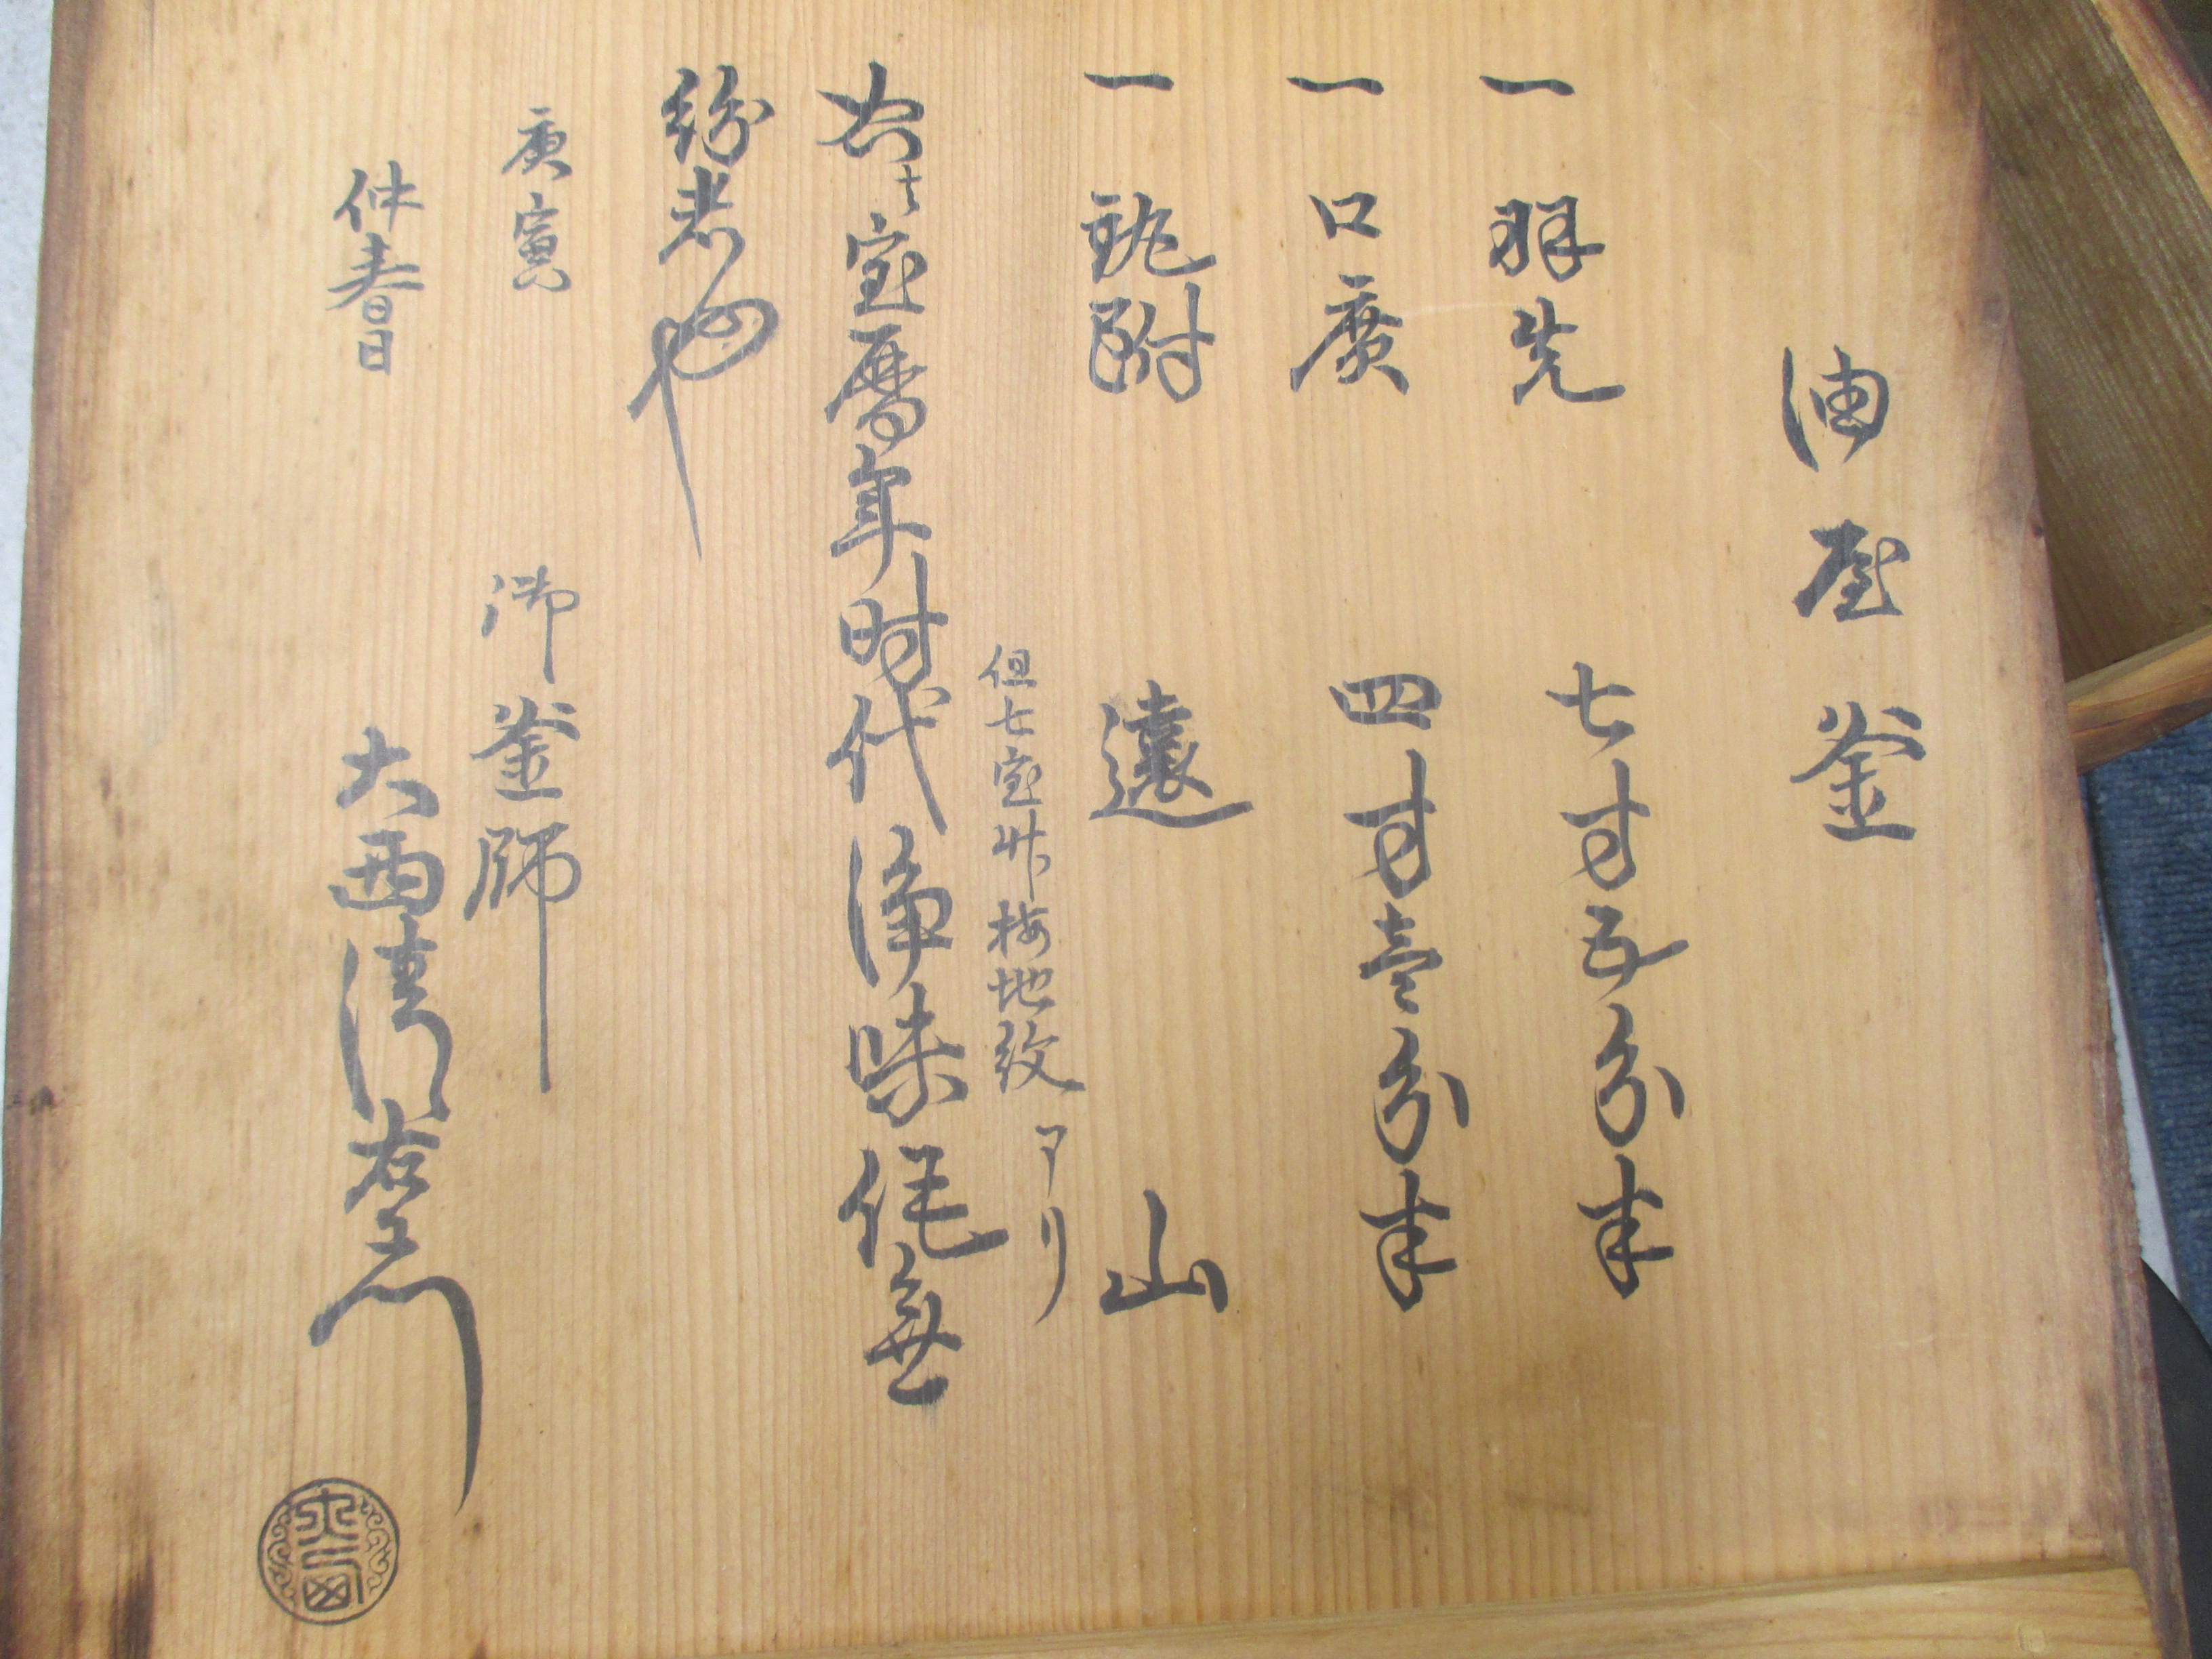 油屋釜
一 羽先 七寸五分半
一 口廣 四寸壱分半
一 鐶附 遠山
但七宝竹梅地紋アリ
右者宝暦年時代浄味作無
紛者也
庚寅
仲春日
御釜師
大西清右衛門
大西